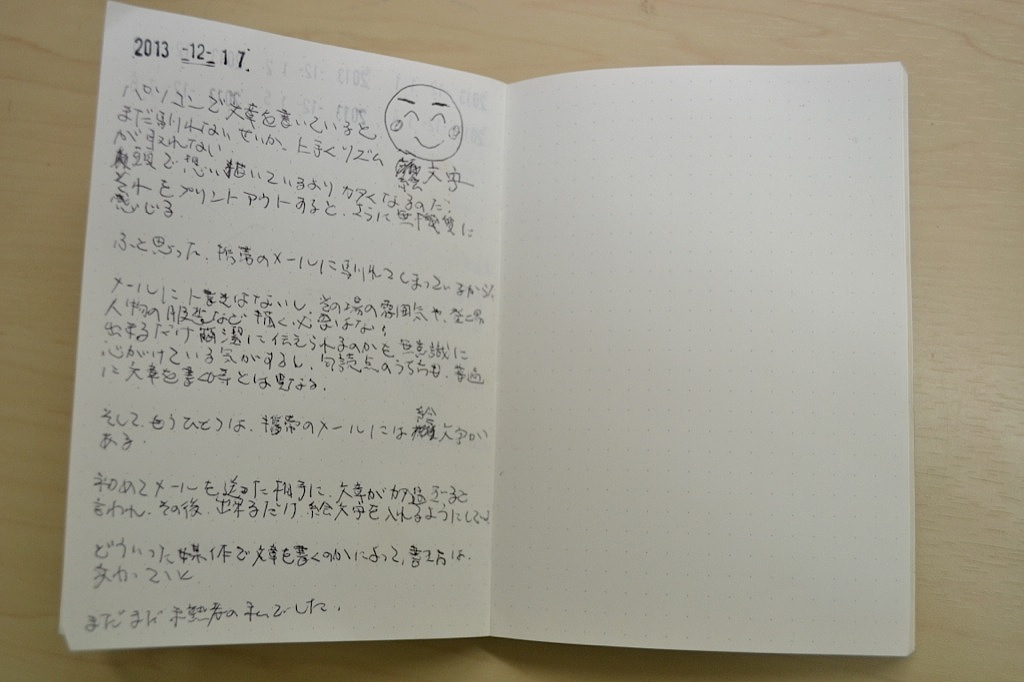 2013 -12- 17
パソコンで文章を書いていると、
まだ馴れないせいか、上手くリズム
が取れない。
絵文字
頭で想い描いているよりカタくなるのだ。
それをプリントアウトすると、さらに無機質に
感じる。
ふと思った、携帯のメールに馴れてしまっているから
メールに下書きはないし、その場の雰囲気や、登場
人物の服装など描く必要はない。
出来るだけ簡潔に伝えられるのかを無意識に
心がけている気がするし、句読点のうち方も、普通
に文章を書く等とは異なる。
そして、もうひとつは、携帯のメールには絵文字が
ある。
初めてメールを送った相手に、文章がカタ過ぎると
言われ、その後、出来るだけ絵文字を入れるようにしている
どういった媒体で文章を書くのかによって、書き方は、
変わっていく
まだまだ未熟者の私でした。